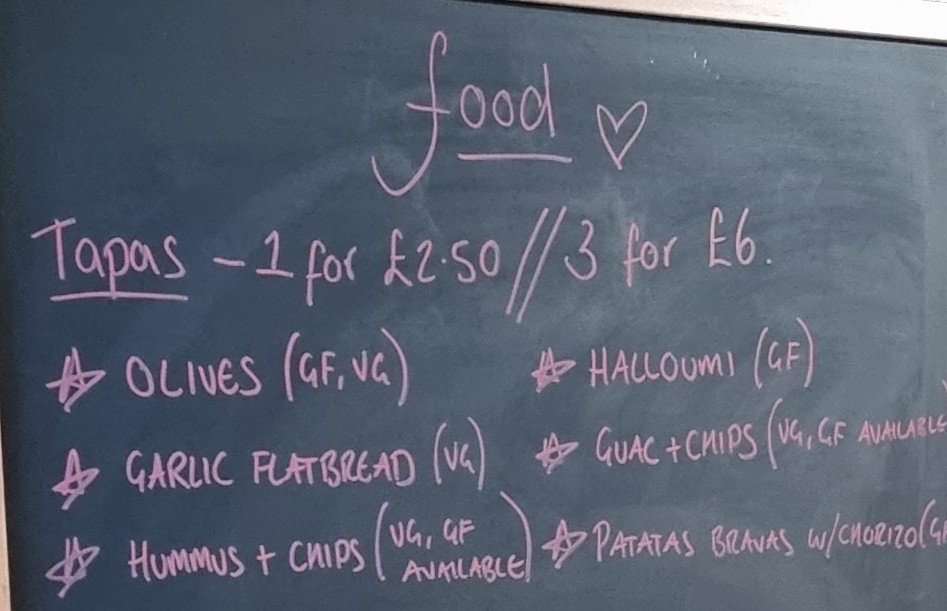 food ♡
Tapas - 1 for £2.50 // 3 for £6.
☆ OLIVES (GF, VG)
☆ HALLOUMI (GF)
☆ GARLIC FLATBREAD (VG)
☆ GUAC + CHIPS (VG, GF AVAILABLE
☆ HUMMUS + CHIPS (VG, GF
AVAILABLE)
☆ PATATAS BRAVAS W/CHORIZO